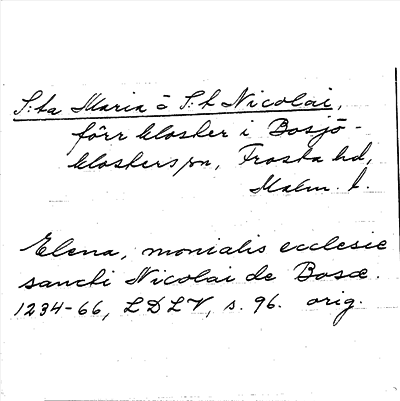 S:ta Maria o S:t Nicolai,
förr kloster i Bosjö-
klosters sn, Frosta hd,
Malm. l.
Elena, monialis ecclesie
sancti Nicolai de Bosœ.
1234-66, LDLV, s. 96. orig.